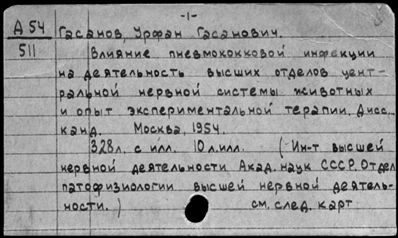 -1-
А 54 Гасанов, Урфан Гасанович.
511 Влияние пневмококковой инфекции
на деятельность высших отделов цент-
ральной нервной системы животных
и опыт экспериментальной терапии. Дисс.
канд. Москва, 1954.
328л. с илл. 10 л.илл. (Ин-т высшей
нервной деятельности Акад. наук СССР. Отдел
патофизиологии высшей нервной деятель-
ности.) см. след. карт